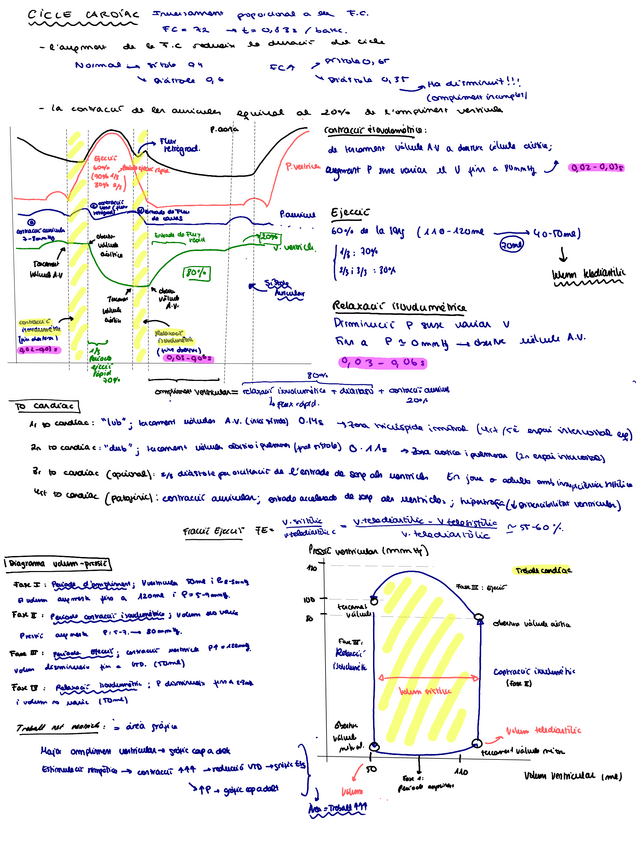 CICLE CARDÍAC Inversament proporcional a la F.C.
FC = 72 → t = 0,833 / batec.
- L'augment de la F.C redueix la duració del cicle
Normal → sístole 0,4
→ Diástole 0,6
FCA → sístole 0,65
→ Diástole 0,35 → Ha disminuit!!!
(ompliment incomplet)
- La contracció de les aurícules equival al 20% de l'ompliment ventricular
P. aorta
Flux retrógrad.
Ejecció
60%
P. ventricle
P. aurícula
V. ventricle
Entrada de Flux ràpid
20%
80%
Tancament vàlvula A.V.
obertura vàlvula aòrtica
Tancament vàlvula aòrtica
obertura vàlvula A.V.
Sístole Auricular
contracció isovolumètrica
0,02-0,03s
1/3 Període ejecció ràpid 70%
Relaxació isovolumètrica
0,03-0,06s
contracció isovolumètrica:
de tancament vàlvula A.V a obertura vàlvula aòrtica;
augment P sense variar el V fins a 80mmHg → 0,02-0,03s
Ejecció
60% de la (110-120ml → 40-50ml)
70ml
1/3: 70%
2/3 i 3/3: 30%
Volum telediastòlic
Relaxació isovolumètrica
Disminució P sense variar V
Fins a P ≃ 0mmHg → obertura vàlvula A.V.
0,03 - 0,06s
80%
ompliment ventricular = relaxació isovolumètrica + diàstasi + contracció auricular
↳ flux ràpid.
20%
To cardíac
1r to cardíac: "lub"; tancament vàlvules A.V. 0.14s → Zona tricúspide i mitral (4rt/5è espai intercostal esq)
2n to cardíac: "dub"; tancament vàlvula aòrtica i pulmonar 0.11s → Zona aòrtica i pulmonar (2n espai intercostal)
3r to cardíac (opcional): 2/3 diàstole per oscil·lació de l'entrada de sang als ventricles En joves o adults amb insuficiència sistòlica
4rt to cardíac (patològic): contracció auricular; entrada accelerada de sang als ventricles; hipertròfia (↓ distensibilitat ventricular)
Fracció Ejecció FE = V. sistòlic / V. telediastòlic = V. telediastòlic - V telesistòlic / V. telediastòlic ≃ 55-60%.
Diagrama volum-pressió
Fase I: Període d'ompliment; V ventricular 50ml i P 2-3mmHg
El volum augmenta fins a 120ml i P = 5-7mmHg.
Fase II: Període contracció isovolumètrica; Volum no varia
Pressió augmenta P: 5-7 → 80mmHg.
Fase III: Període Ejecció; contracció ventricle P↑ = 120mmHg
volum disminueix fins a VTD. (50ml)
Fase IV: Relaxació isovolumètrica; P disminueix fins a 2-3mmHg
i volum no varia (50ml)
Treball net mecànic: = àrea gràfica
Major ompliment ventricular → gràfic cap a dret
Estimulació simpàtica → contracció ↑↑↑ → reducció VTD → gràfic Esq
↳ ↑P → gràfic cap a dalt
Àrea = Treball ↑↑↑
Pressió ventricular (mmHg)
120
100
80
Treball cardíac
Fase III: Ejecció
tancament vàlvula
obertura vàlvula aòrtica
Fase IV: Relaxació isovolumètric
Contracció isovolumètric
(Fase II)
Volum sistòlic
Obertura vàlvula mitral.
Volum telediastòlic
tancament vàlvula mitral
50
110
Volum
Fase 1: Període ompliment
Volum ventricular (ml)